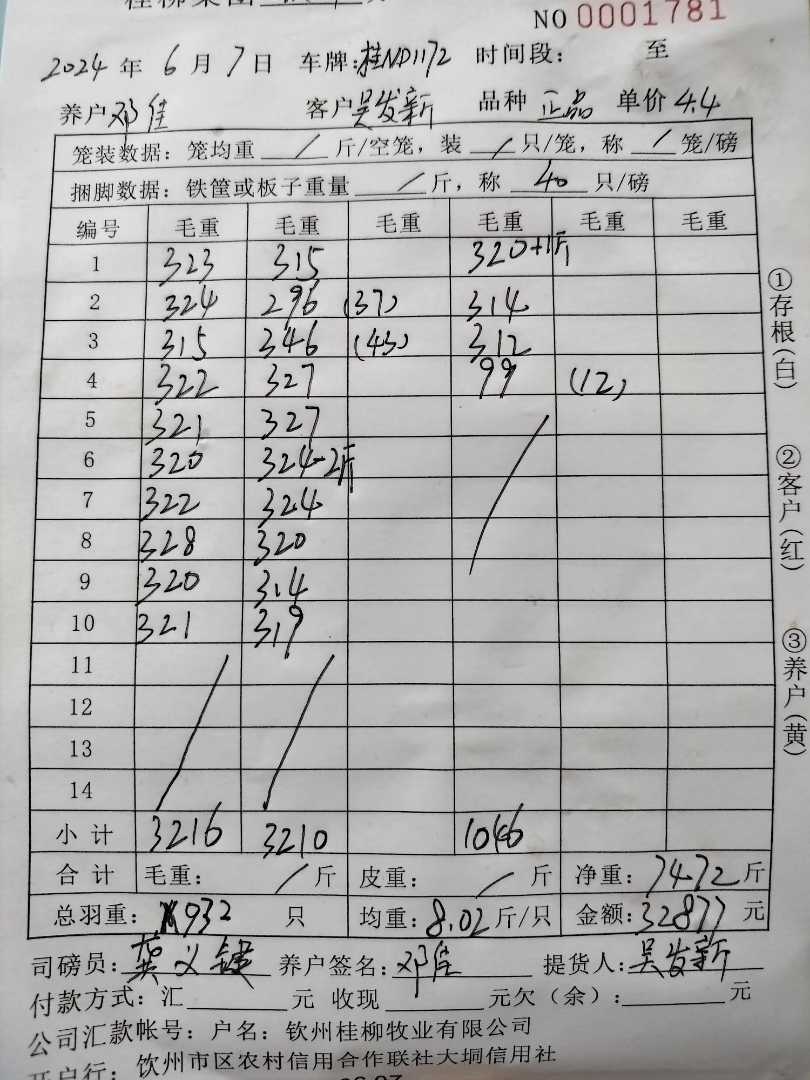 桂柳集团
NO 0001781
2024 年 6 月 7 日 车牌:桂ND1172 时间段: 至
养户 邓佳 客户 吴发新 品种 正品 单价 4.4
笼装数据: 笼均重 / 斤/空笼, 装 / 只/笼, 称 / 笼/磅
捆脚数据: 铁筐或板子重量 / 斤, 称 40 只/磅
编号 毛重 毛重 毛重 毛重 毛重 毛重
1 323 315 320+1斤
2 324 296 (37) 314
3 315 346 (43) 312
4 322 327 99 (12)
5 321 327
6 320 324-2斤
7 322 324
8 328 320
9 320 314
10 321 319
11
12
13
14
小 计 3216 3210 1046
合 计 毛重: / 斤 皮重: / 斤 净重: 7472 斤
总羽重: 932 只 均重: 8.02 斤/只 金额: 32877 元
司磅员: 养户签名: 邓佳 提货人: 吴发新
付款方式: 汇 元 收现 元欠(余): 元
公司汇款帐号: 户名: 钦州桂柳牧业有限公司
开户行: 钦州市区农村信用合作联社大垌信用社
①存根(白)
②客户(红)
③养户(黄)